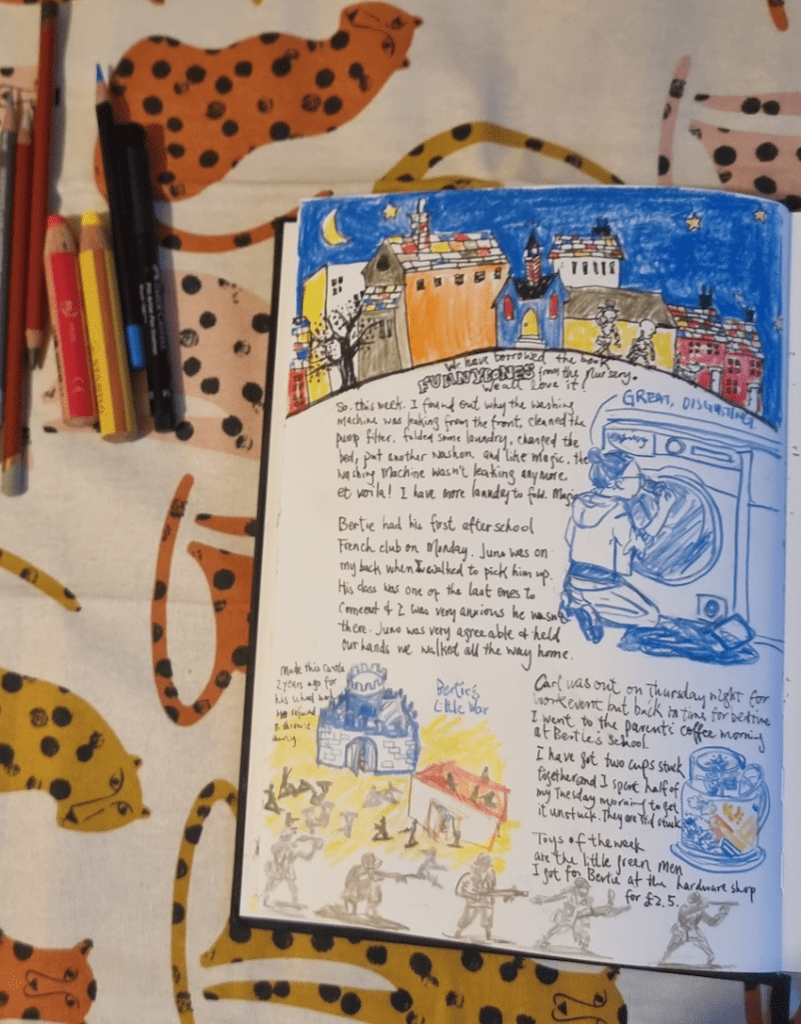 We have borrowed the book
FUNNYBONES from the nursery.
We all love it!
GREAT, DISGUSTING
So, this week, I found out why the washing
machine was leaking from the front, cleaned the
pump filter, folded some laundry, changed the
bed, put another wash on, and like magic, the
washing machine wasn't leaking anymore.
et voila! I have more laundry to fold. Magic
Bertie had his first afterschool
French club on Monday. Juno was on
my back when I walked to pick him up.
His class was one of the last ones to
come out & I was very anxious he wasn't
there. Juno was very agreeable & held
our hands we walked all the way home.
Made this castle
2 years ago for
his school work
He refused
to throw it
away.
Bertie's
Little War
Carl was out on Thursday night for
work event but back in time for bedtime
I went to the parent's coffee morning
at Bertie's school.
I have got two cups stuck
together and I spent half of
my Tuesday morning to get
it unstuck. They are still stuck
Toys of the week
are the little green men
I got for Bertie at the hardware shop
for £2.5.